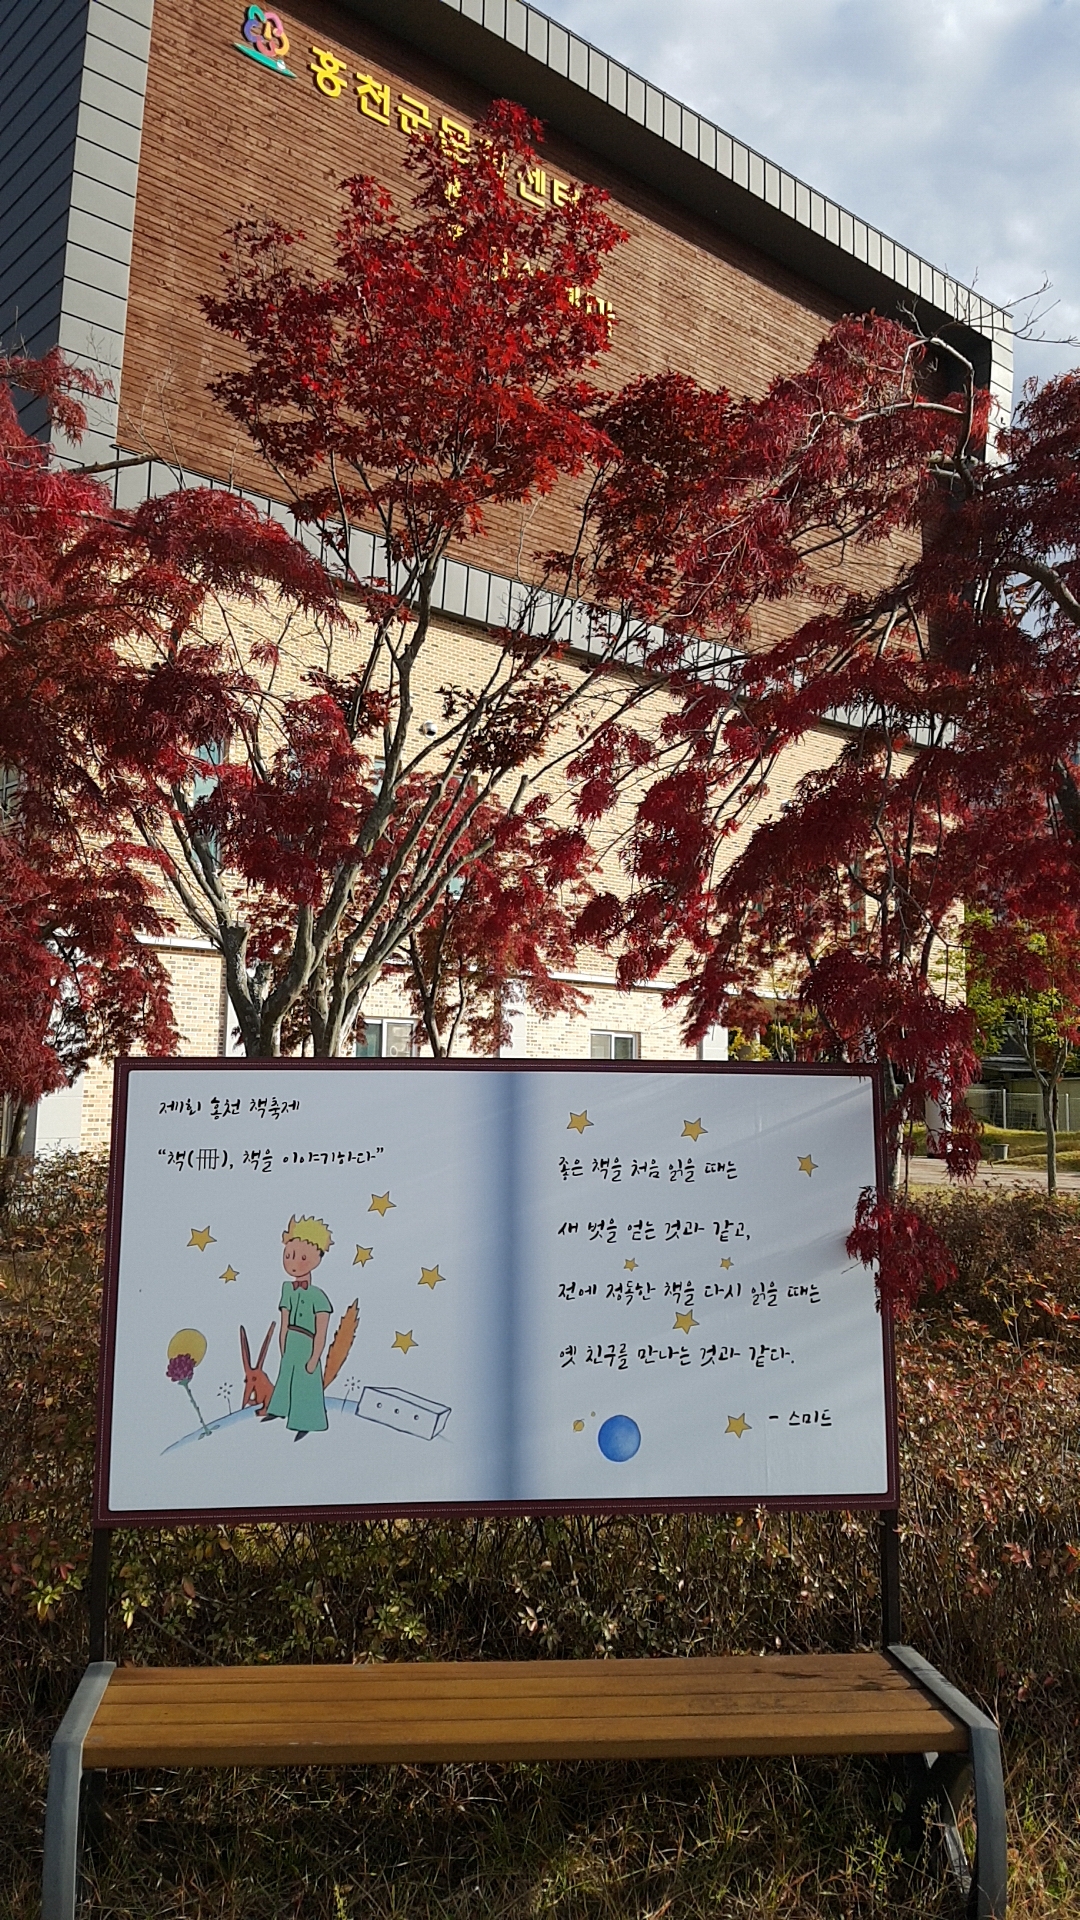 홍천군 센터
제1회 홍천 책축제
“책(冊), 책을 이야기하다”
좋은 책을 처음 읽을 때는
새 벗을 얻는 것과 같고,
전에 정독한 책을 다시 읽을 때는
옛 친구를 만나는 것과 같다.
- 스미드